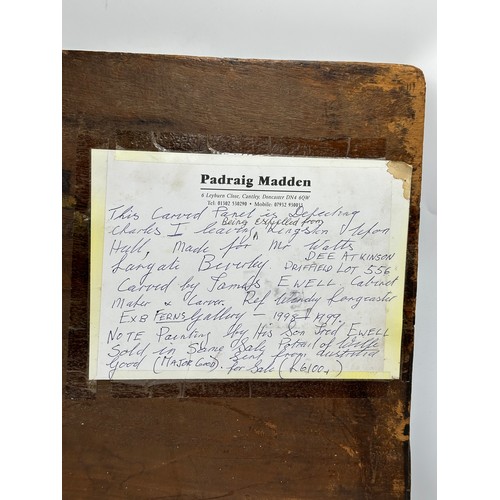 Padraig Madden
6 Leyburn Close, Cantley, Doncaster DN4 6QW
Tel: 01302 530290 • Mobile: 07952 930012
This Carved Panel is Depicting
Being expelled from
Charles I leaving Kingston Upon
Hull, Made for Mr Watts
DEE ATKINSON
Largate Beverley. DRIFFIELD LOT 556
Carved by James EWELL Cabinet
Maker & Carver. Ref Wendy
EXB FERNS Gallery - 1998 - 1999.
NOTE Painting By His Son Fred EWELL
Sold in Same Sale Potrait of Wolfe
Good (MAJOR Good). Sent from Australia
for Sale (£6100)